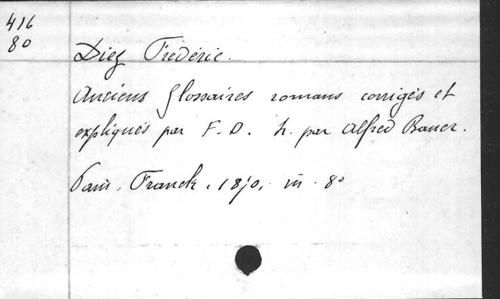 416
80
Diez Frédéric.
Anciens Glossaires romans corrigés et
expliqués par F. D. tr. par Alfred Bauer.
Paris, Franck, 1870, in 8°